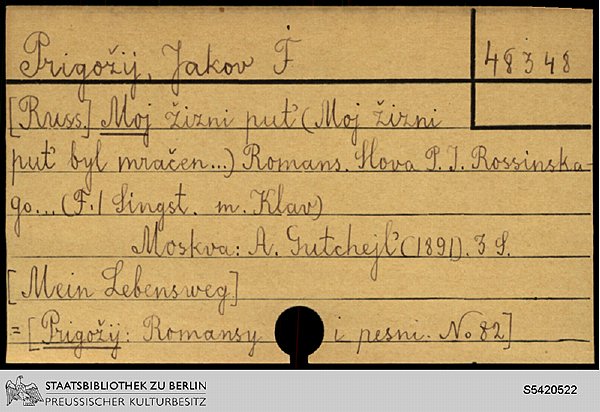 Prigožij, Jakov F
48348
[Russ.] Moj žizni put' (Moj žizni
put' byl mračen...) Romans. Slova P. I. Rossinska-
go... (F. 1 Singst. m. Klav)
Moskva: A. Gutchejl' (1891). 3 S.
[Mein Lebensweg]
= [Prigožij: Romansy i pesni. No 82]
STAATSBIBLIOTHEK ZU BERLIN
PREUSSISCHER KULTURBESITZ
S5420522